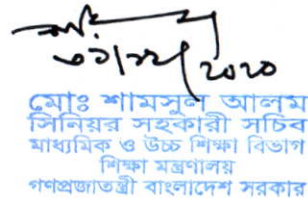 ২০২০
মোঃ শামসুল আলম
সিনিয়র সহকারী সচিব
মাধ্যমিক ও উচ্চ শিক্ষা বিভাগ
শিক্ষা মন্ত্রণালয়
গণপ্রজাতন্ত্রী বাংলাদেশ সরকার